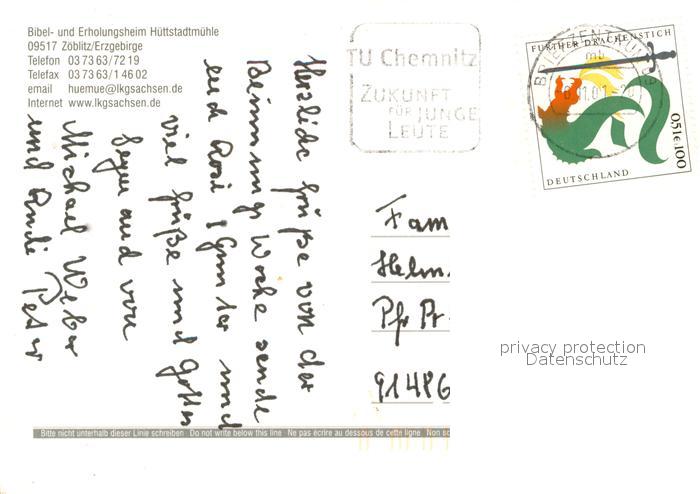 Bibel- und Erholungsheim Hüttstadtmühle
09517 Zöblitz/Erzgebirge
Telefon 03 73 63/72 19
Telefax 03 73 63/1 46 02
email huemue@lkgsachsen.de
Internet www.lkgsachsen.de
Herzliche Grüße von der
Besinnungs Woche sende
euch Rosi, Gunter und
viel Grüße und Gottes
Segen auch von
Michael Weber
und Rudi Peter
TU Chemnitz
ZUKUNFT
FÜR JUNGE
LEUTE
BRIEFZENTRUM
FURTHER DRACHENSTICH
0,51€ 100
DEUTSCHLAND
Fam
Helm.
Pfr Pr
91486
privacy protection
Datenschutz
Bitte nicht unterhalb dieser Linie schreiben Do not write below this line Ne pas écrire au dessous de cette ligne Non sc